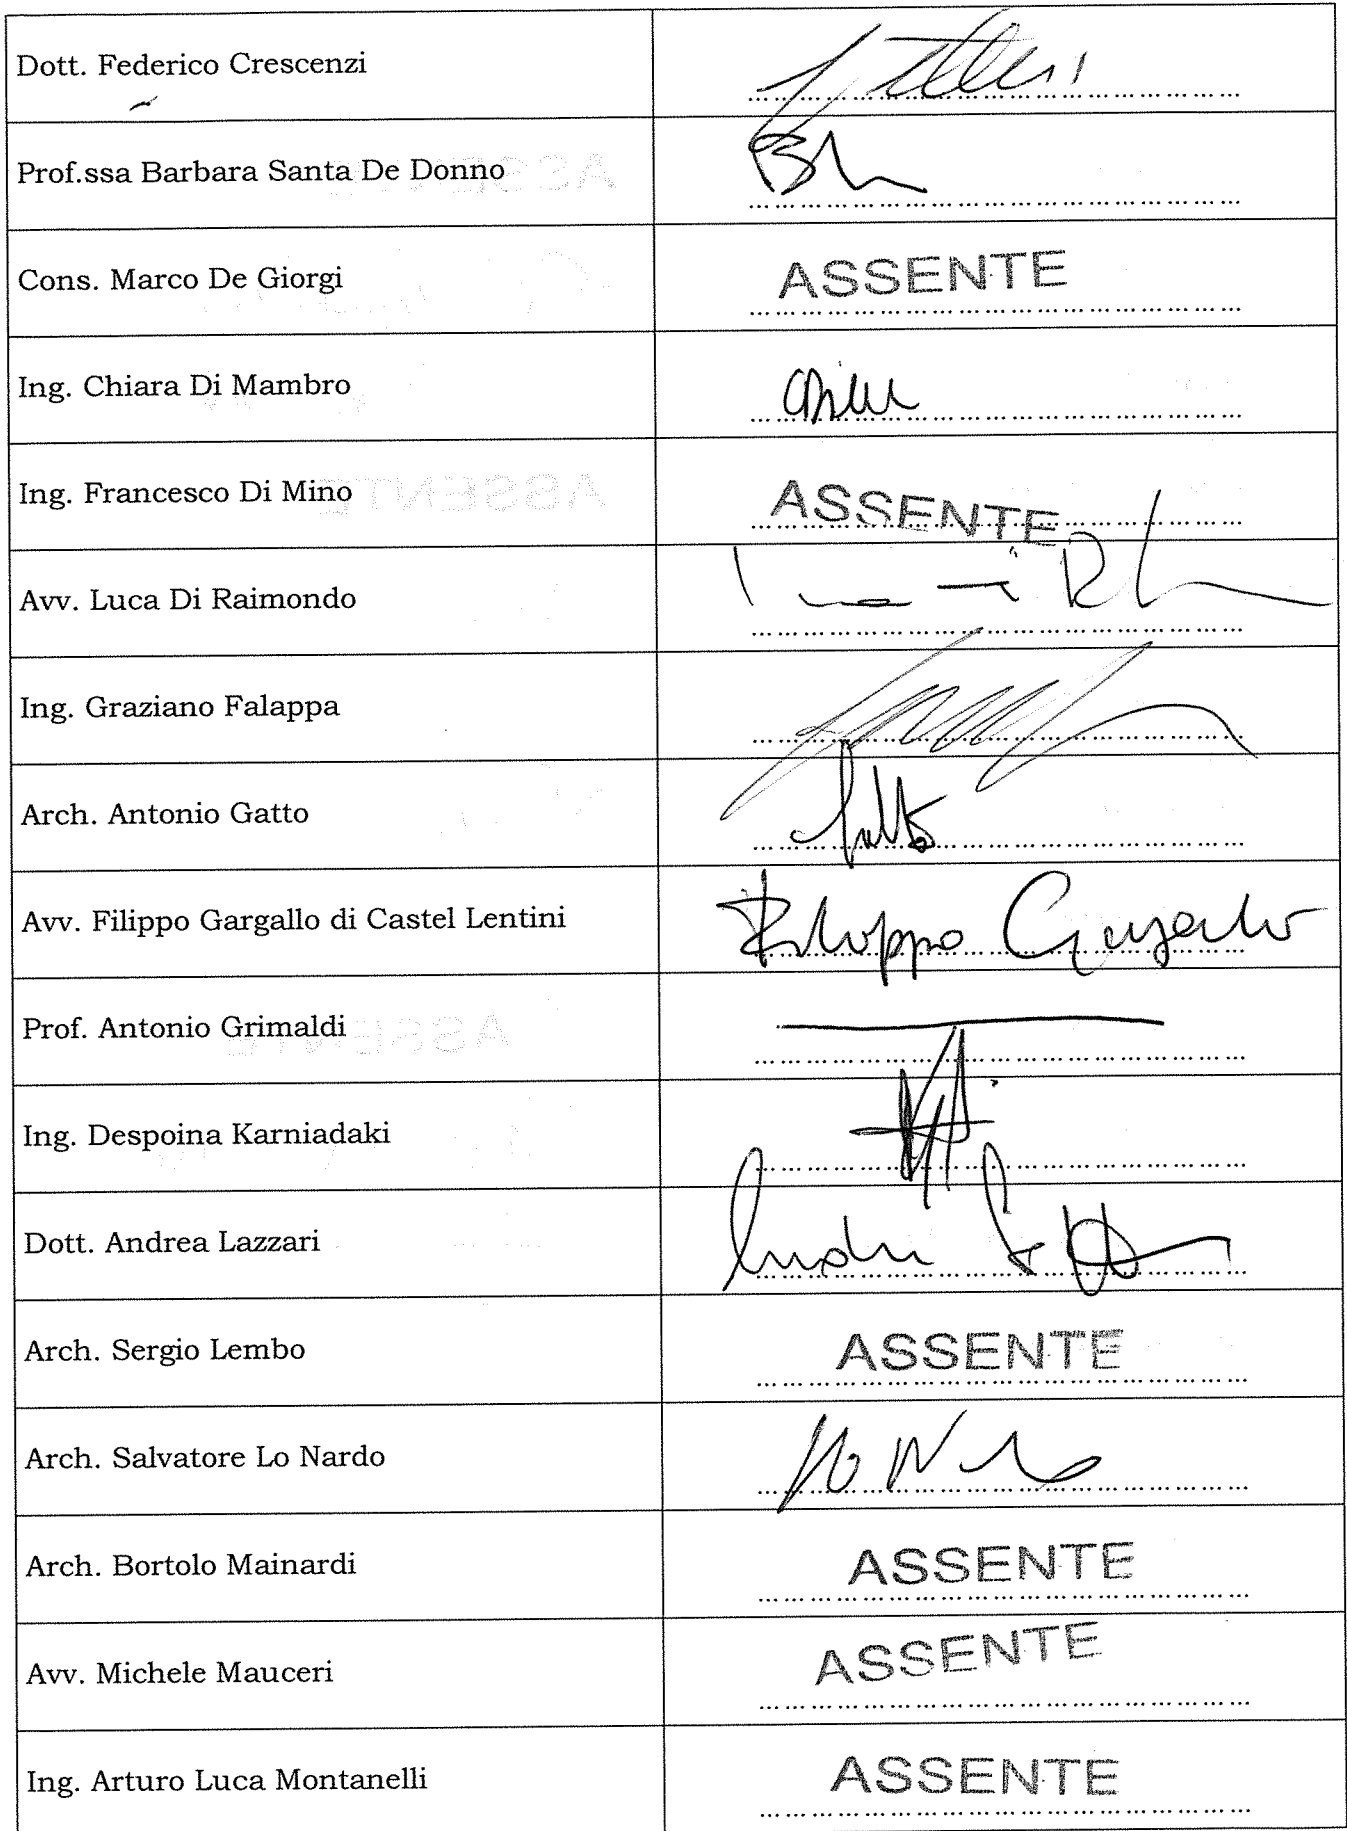 Dott. Federico Crescenzi
Prof.ssa Barbara Santa De Donno
Cons. Marco De Giorgi
ASSENTE
Ing. Chiara Di Mambro
Ing. Francesco Di Mino
ASSENTE
Avv. Luca Di Raimondo
Ing. Graziano Falappa
Arch. Antonio Gatto
Gatto
Avv. Filippo Gargallo di Castel Lentini
Filippo Gargallo
Prof. Antonio Grimaldi
Ing. Despoina Karniadaki
Dott. Andrea Lazzari
Andrea
Arch. Sergio Lembo
ASSENTE
Arch. Salvatore Lo Nardo
Arch. Bortolo Mainardi
ASSENTE
Avv. Michele Mauceri
ASSENTE
Ing. Arturo Luca Montanelli
ASSENTE